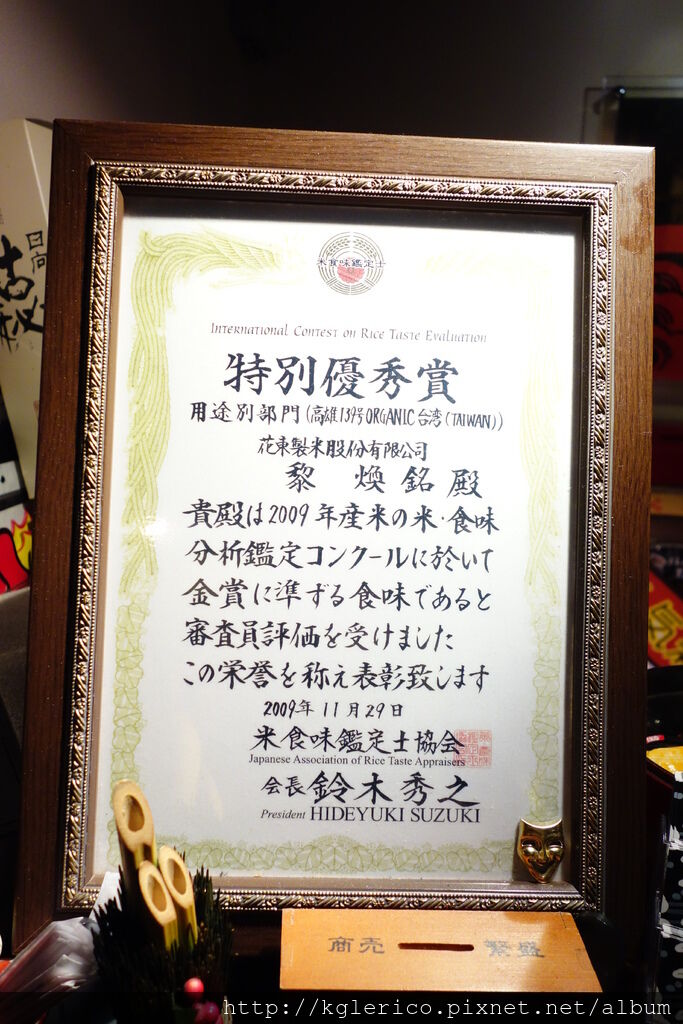 米食味鑑定士
International Contest on Rice Taste Evaluation
特別優秀賞
用途別部門(高雄139号ORGANIC台湾(TAIWAN))
花東製米股份有限公司
黎 煥銘 殿
貴殿は2009年産米の米・食味
分析鑑定コンクールに於いて
金賞に準ずる食味であると
審査員評価を受けました
この栄誉を称え表彰致します
2009年11月29日
米食味鑑定士協会
Japanese Association of Rice Taste Appraisers
会長 鈴木秀之
President HIDEYUKI SUZUKI
商売 繁盛
日向
http://kglerico.pixnet.net/album